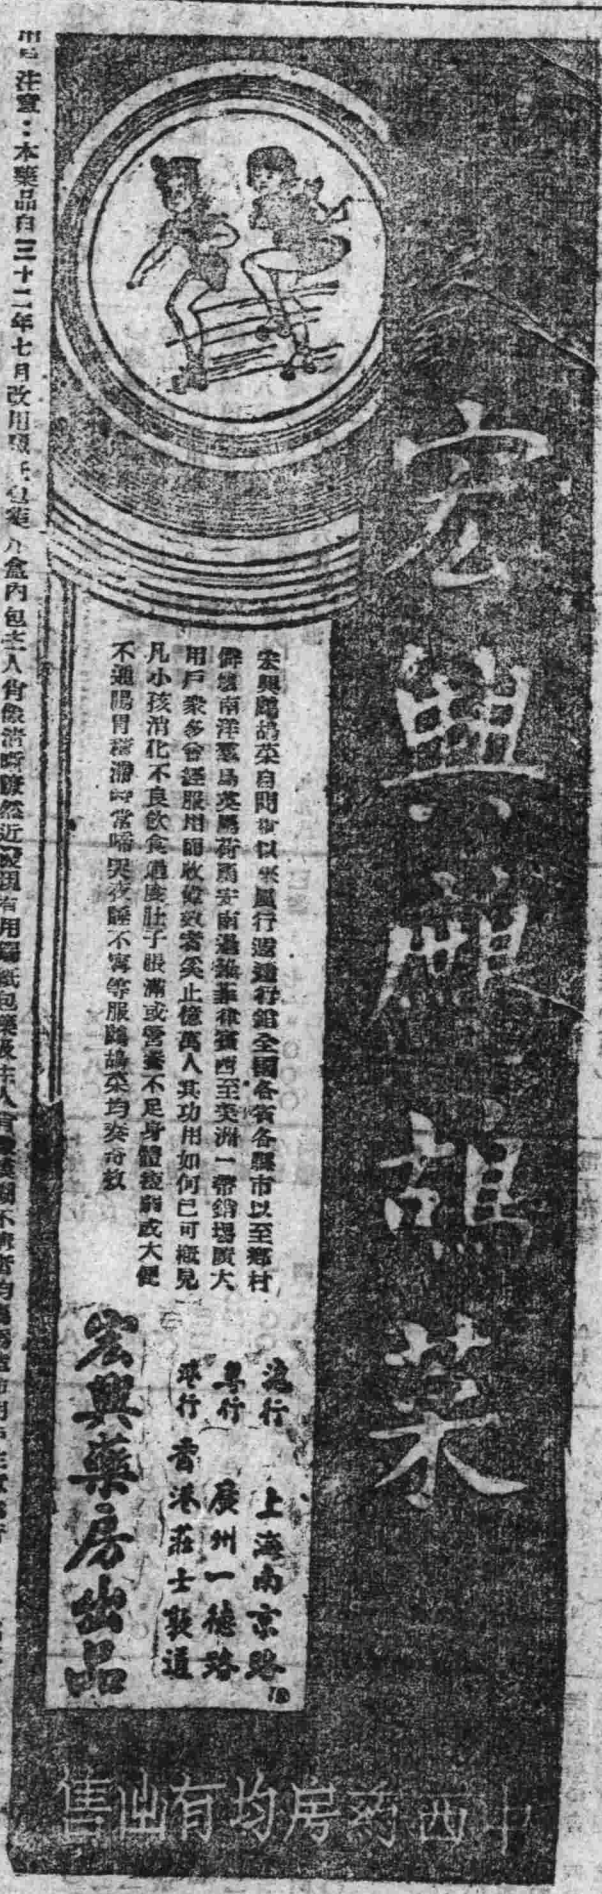 宏興鷓鴣菜
宏興鷓鴣菜自問世以來風行遐邇行銷全國各省各縣市以至鄉村
僻壤南洋羣島英屬荷屬安南暹羅菲律賓西至美洲一帶銷塲廣大
用戶衆多曾經服用而收偉效者奚止億萬人其功用如何已可槪見
凡小孩消化不良飮食過度肚子脹滿或營養不足身體瘦弱或大便
不通腸胃積滯時常啼哭夜睡不寗等服鷓鴣菜均奏奇效
滬行 上海南京路
粵行 廣州一德路
港行 香港莊士敦道
宏興藥房出品
注意:本藥品自三十二年七月改用
盒內包
人
然近發現有用錫紙包
中西葯房均有出售